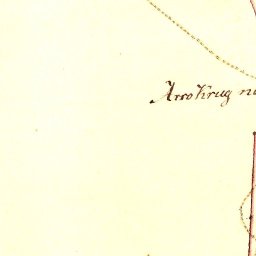 Arro Krug